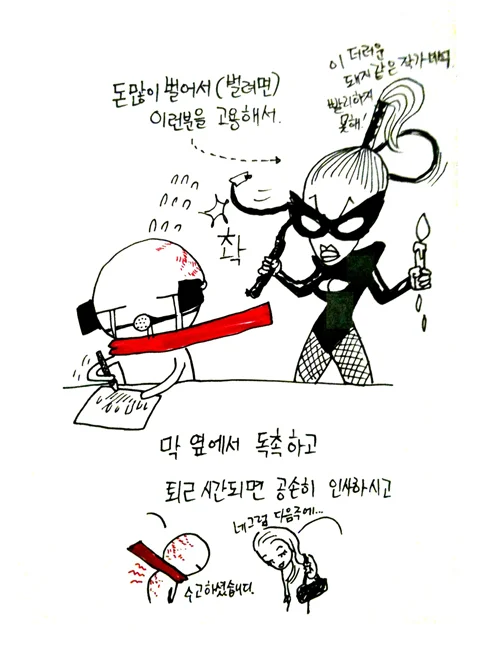 돈많이 벌어서 (벌려면)
이런분을 고용해서.
이 더러운
돼지같은 작가녀석.
빨리하지
못해!
촤악
막 옆에서 독촉하고
퇴근시간되면 공손히 인사하시고
네그럼 다음주에...
수고하셨습니다.